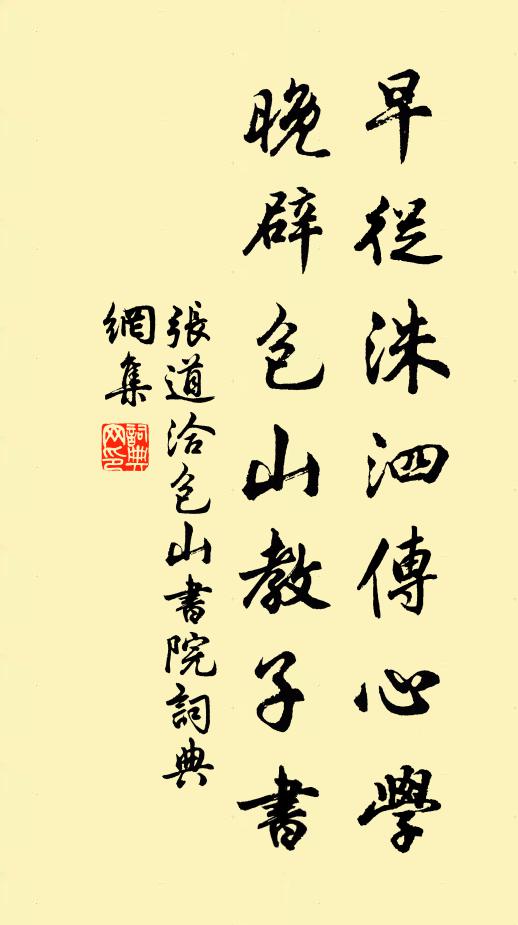 早從洙泗傳心學
晚辟包山教子書
張道洽包山書院詞典
網集
詞典网印